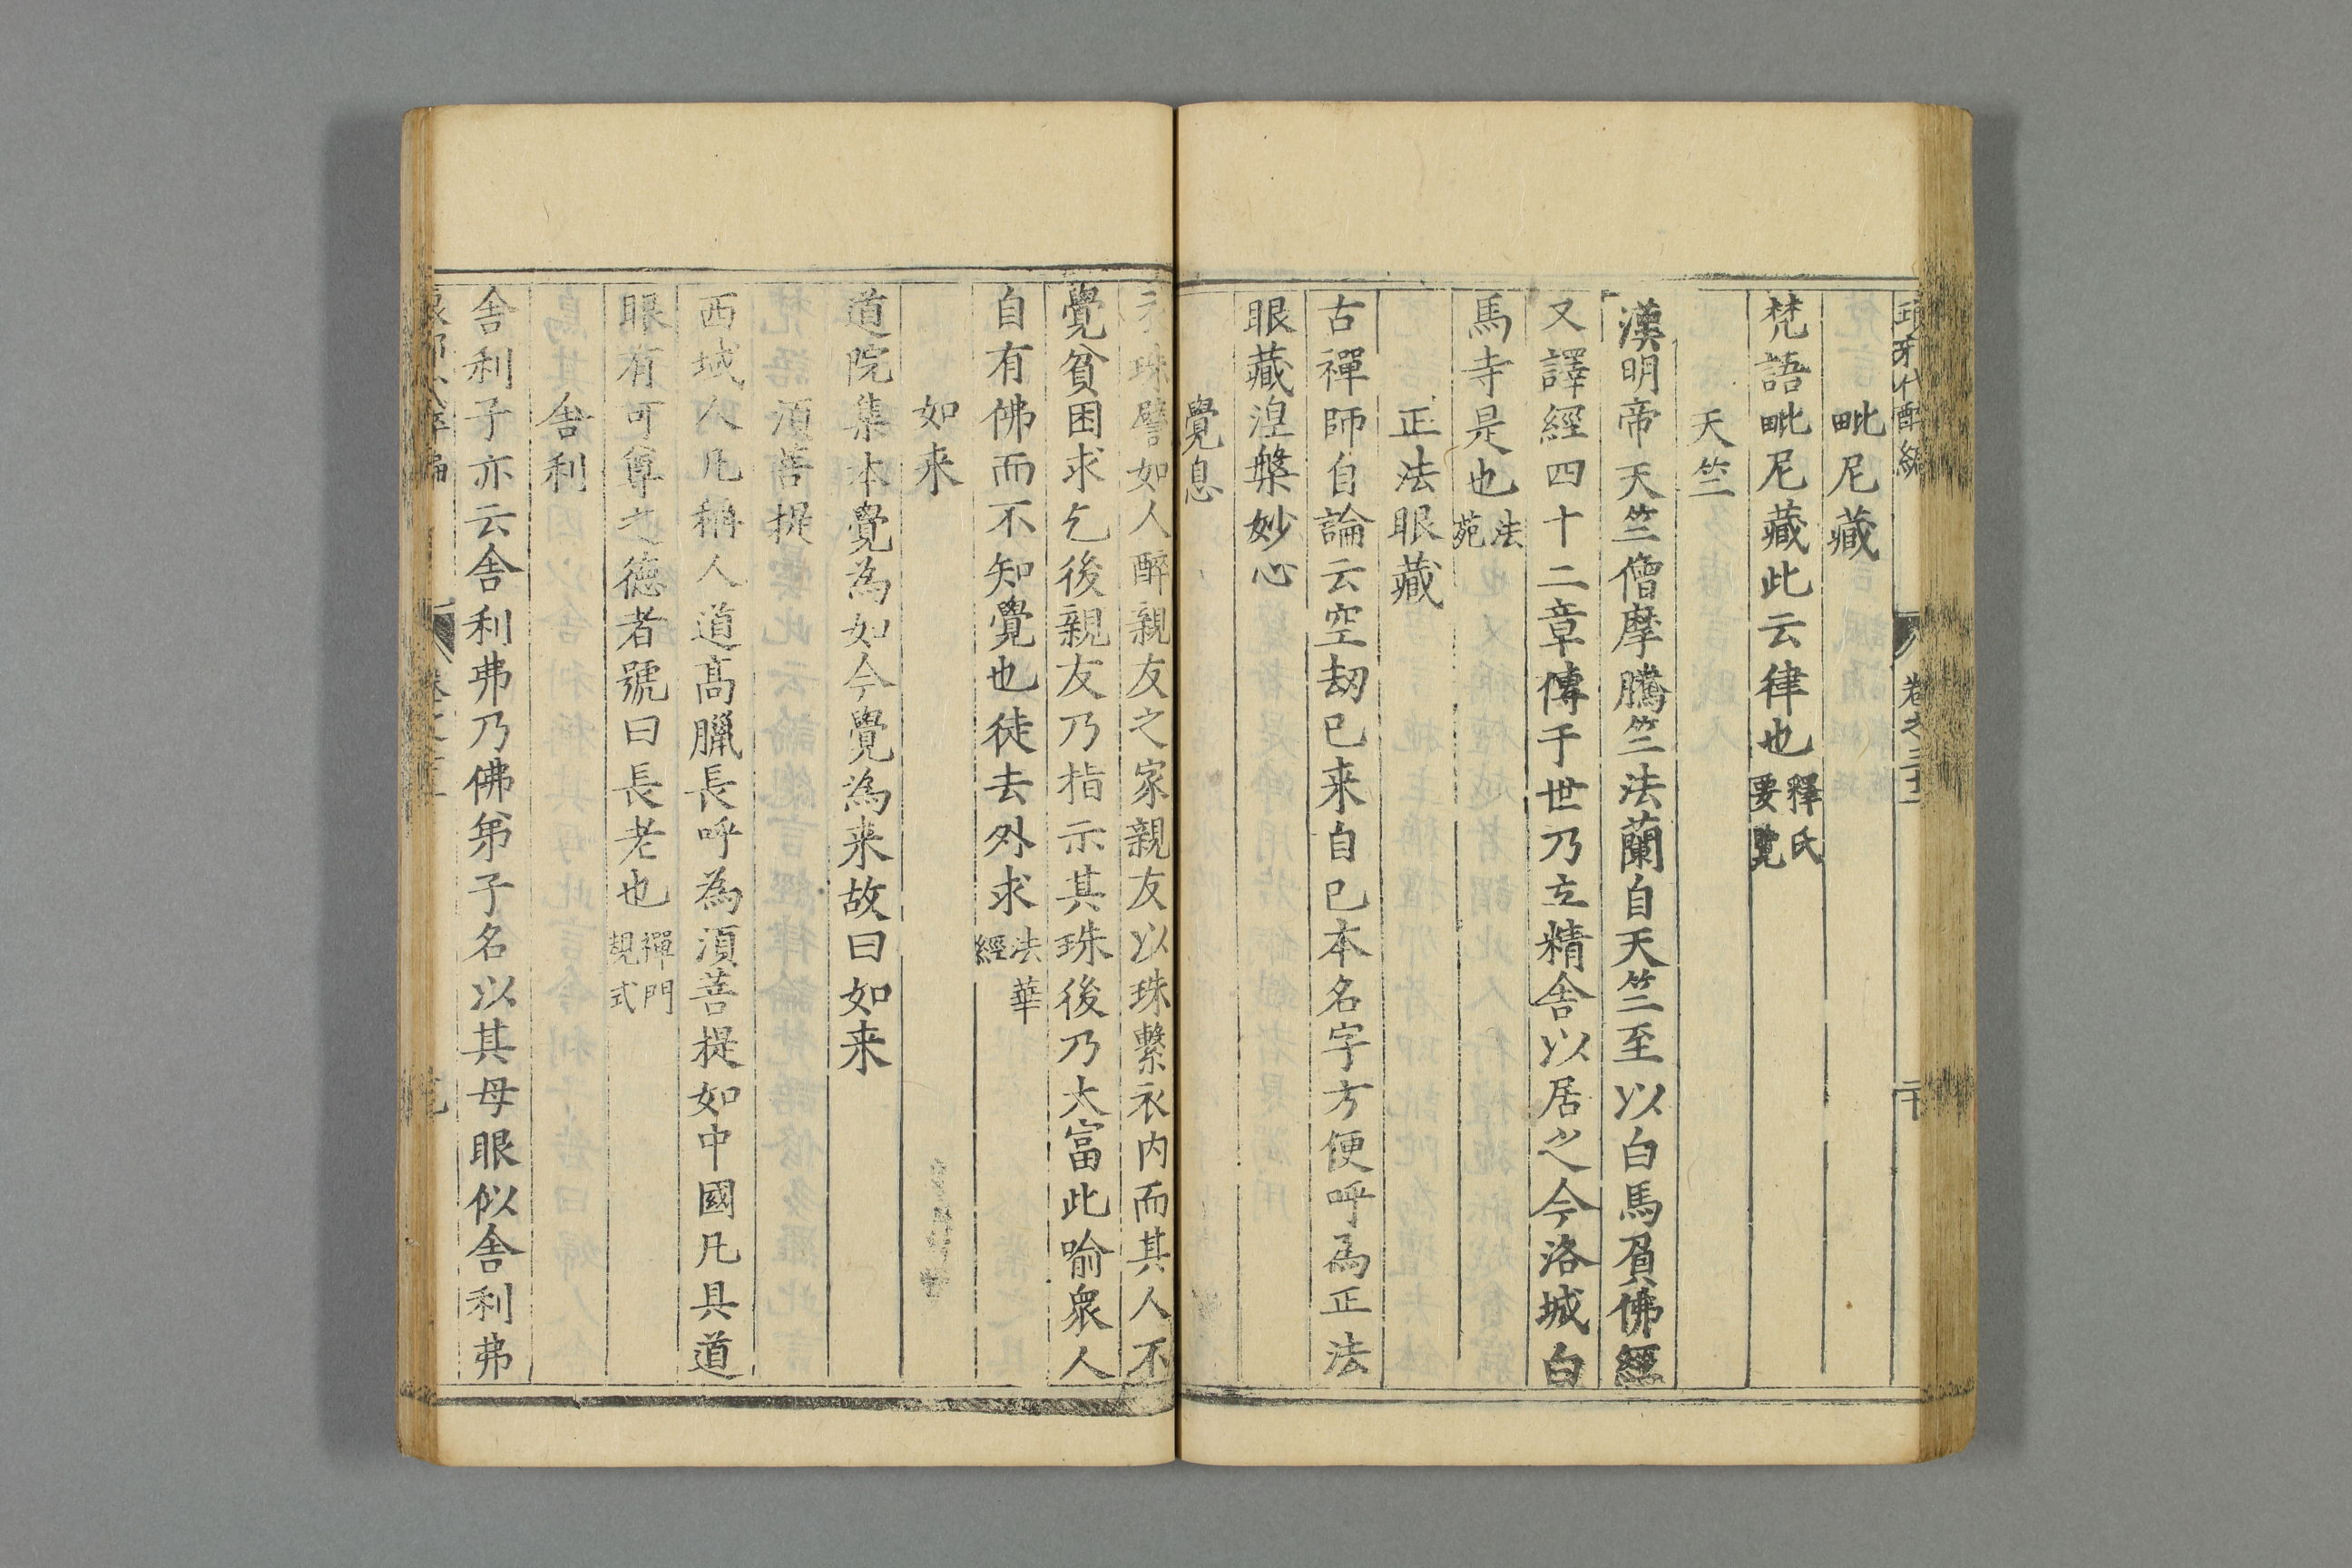 琅邪代醉編 卷之三十一 二十
毗尼藏
梵語毗尼藏此云律也釋氏要覽
天竺
漢明帝天竺僧摩騰竺法蘭自天竺至以白馬負佛經
又譯經四十二章傳于世乃立精舍以居之今洛城白
馬寺是也法苑
正法眼藏
古禪師自論云空刼已来自已本名字方便呼為正法
眼藏湼槃妙心
覺息
衣珠譬如人醉親友之家親友以珠繫衣内而其人不
覺貧困求乞後親友乃指示其珠後乃大富此喻衆人
自有佛而不知覺也徒去外求法華經
如来
道院集本覺為如今覺為来故曰如来
須菩提
西域人凡稱人道髙臘長呼為須菩提如中國凡具道
眼有可尊之德者號曰長老也禪門規式
舎利
舎利子亦云舎利弗乃佛弟子名以其母眼似舎利弗